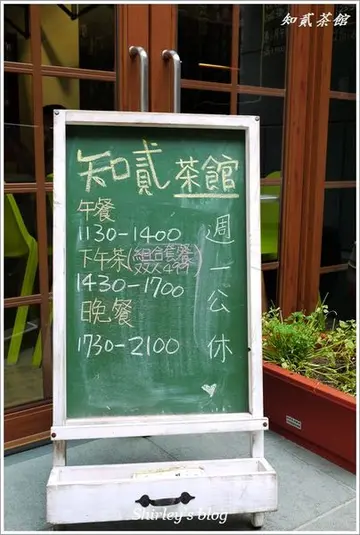 知貳茶館
知貳茶館
午餐
1130-1400
下午茶(組合套餐
双人4折)
1430-1700
晚餐
1730-2100
週一公休
Shirley's blog